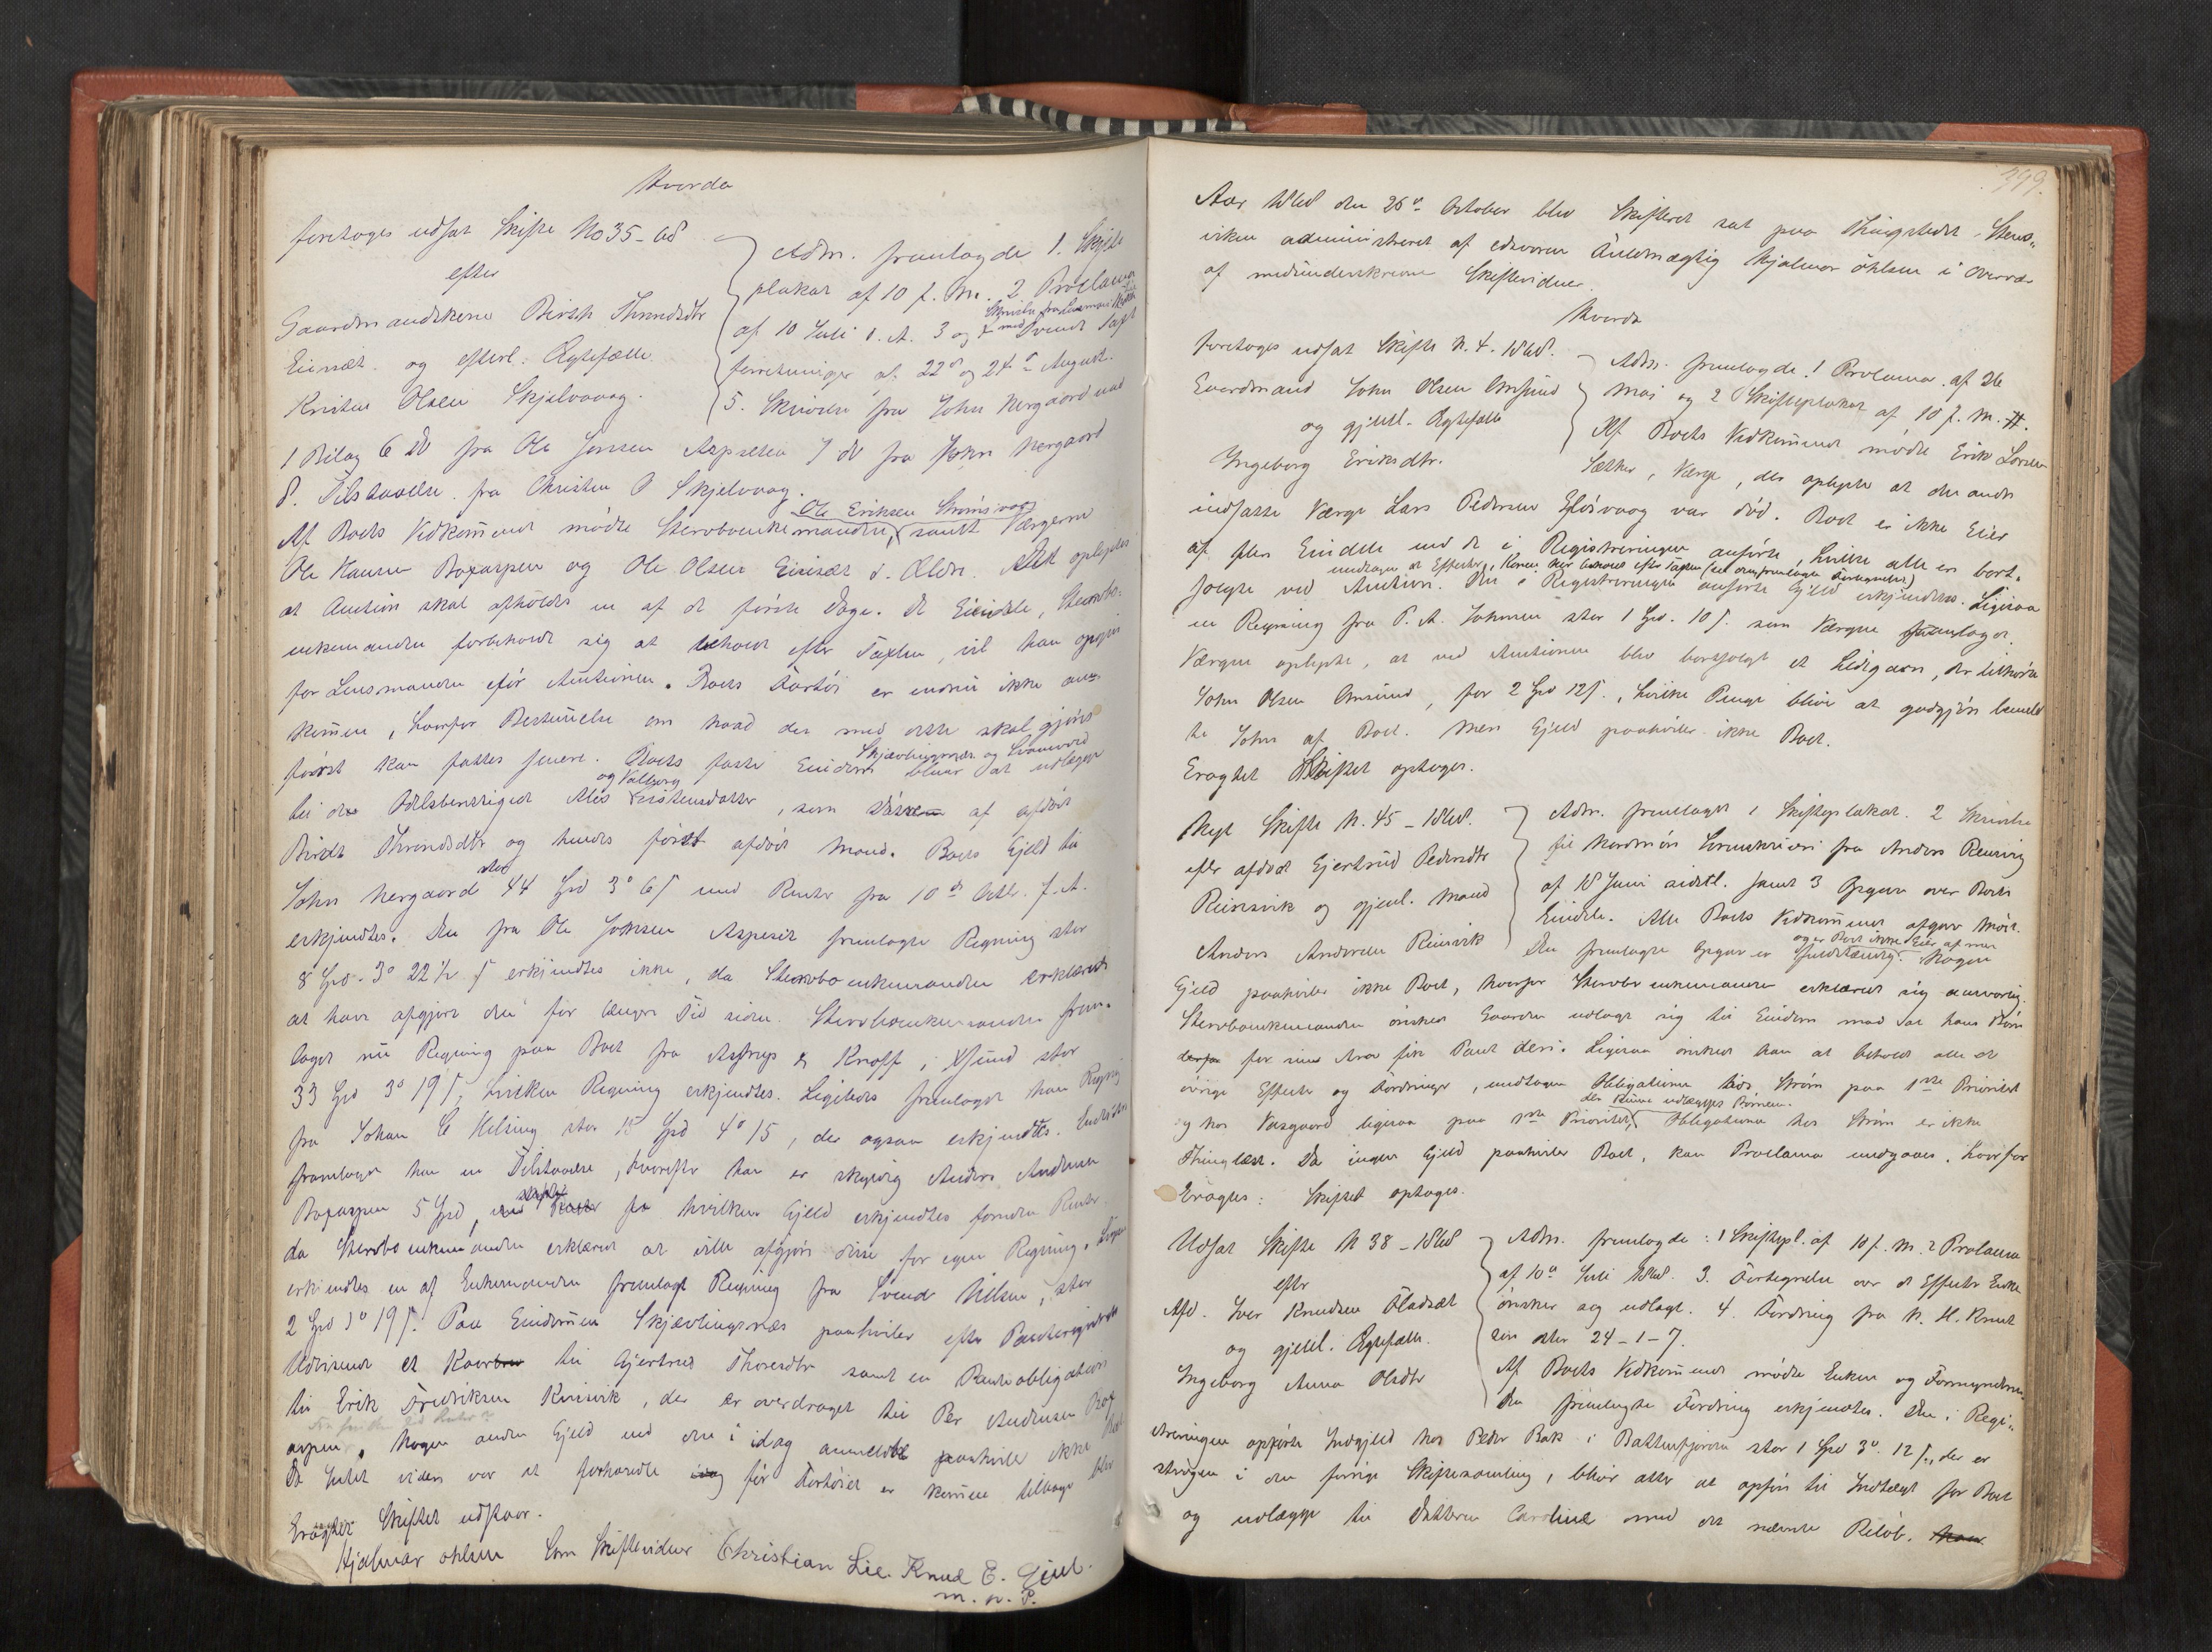 Hvorda
foretoges udsat Skifte No 35-68
efter
Gaardmandskone Birth Throndsdtr
Eirisæt og efterl. Ægtefælle
Kristen Olsen Skjelvaag.
Adm. fremlagde 1. Skifte
plakat af 10 f. M. 2 Proclama
af 10 Juli d. A. 3 og 4
forretninger af 22d og 24d August.
5. Skrivelse fra John Nergaard med
1 Bilag 6 do fra Ole Jonsen Aspseten 7 do fra John Nergaard
8. Tilstaaelse fra Christen O Skjelvaag.
Ole Eriksen Strømsvaag
Af Boets Vedkommende mødte Stervboenkemanden, samt Værgerne
Ole Hansen Boxaspen og Ole Olsen Eirisæt d. Ældre. Det oplystes
at Auktion skal afholdes en af de første Dage. De Eiendele, Stervbo-
enkemanden forbeholdt sig at beholde efter Taxten, vil han opgive
for Lensmanden før Auktionen. Boets Fartøi er endnu ikke an-
kommen, hvorfor Bestemmelse om hvad der med dette skal gjøres
først kan fattes senere. Boets faste Eiendom Skjævlingsnæs og bliver at udlægge
og Valborg
til de Odelsberettigede Alis Kristensdatter, som af afdøde
Birth Throndsdtr og hendes først afdøde Mand. Boets Gjeld til
John Nergaard stor 44 Spd 3o 6 s med Renter fra 10de Octbr. f. A.
erkjendtes. Den fra Ole Jonsen Aspseten fremlagte Regning stor
8 Spd. 3o 22 1/2 s erkjendtes ikke, da Stervboenkemanden erklærede
at have afgjort den for længere Tid siden. Stervboenkemanden frem-
lagde nu Regning paa Boet fra Astrup & Knoff i Xsund stor
33 Spd 3o 19 s, hvilken Regning erkjendtes. Ligeledes fremlagde han Regning
fra Johan C Helsing stor 15 Spd 4o 15, der ogsaa erkjendtes.
fremlagde han en Tilstaaelse, hvorefter han er skyldig Anders Andersen
Boxaspen 5 Spd, hvilken Gjeld erkjendtes foruden Renter.
da Stervboenkemanden erklærede at ville afgjøre disse for egen Regning.
erkjendtes en af Enkemanden fremlagt Regning fra Svend Nilsen, stor
2 Spd 1o 19 s. Paa Eiendommen Skjævlingsnæs paahviler efter Panteregisterets
Udvisende et Kaar til Gjertrud Thoresdtr samt en Panteobligation
til Erik Fredriksen Kvisvik, der er overdraget til Per Andersen Box
aspen. Nogen anden Gjeld end den i idag anmeldte paahviler ikke Boet
Da Intet videre var at forhandle før Fartøiet er kommen tilbage blev
Eragtet Skiftet udstaar.
Hjalmar Ohlsen Som Skiftevidner Christian Lie. Knud E. Gjul.
m. p. P.
399.
Aar 1868 den 26de October blev Skifteret sat paa Thingstedet Stens-
viken administreret af edsvoren Fuldmægtig Hjalmar Ohlsen i Overvær
af medunderskrevne Skiftevidner.
Hvorda
Foretoges udsat Skifte N. 4. 1868.
Gaardmand John Olsen Omsund
og gjenl. Ægtefælle
Ingeborg Eriksdtr.
Adm. fremlagde 1 Proclama af 26
Mai og 2 Skifteplakat af 10 f. M.
Af Boets Vedkommende mødte Erik Larsen
Sæther, Værge, der oplyste at den anden
indsatte Værge Lars Pedersen Gløsvaag var død. Boet er ikke Eier
af flere Eiendele end de i Registreringen anførte, hvilke alle er bort-
undtagen de Effecter, Konen har beholdt efter Taxten (se den fremlagte Fortegnelse)
solgte ved Auktion. Den i Registreringen anførte Gjeld erkjendtes. Ligesaa
en Regning fra P. A. Johnsen stor 1 Spd. 10 s. som Værgen fremlagde.
Værgen oplyste, at ved Auktionen blev bortsolgt et Sildgarn, der tilhørte
John Olsen Omsund, for 2 Spd 12 s., hvilke Penge bliver at godtgjøre bemeld
te John af Boet. Mere Gjeld paahviler ikke Boet.
Eragtet Skiftet optages.
Nyt Skifte N. 45 - 1868.
efter afdøde Gjertrud Pedersdtr
Reinsvik og gjenl. Mand
Anders Andersen Reinsvik
Adm. fremlagde 1 Skifteplakat. 2 Skrivelse
til Nordmøre Sorenskriveri fra Anders Reinsvig
af 18 Juni sidstl. samt 3 Opgave over Boets
Eiendele. Alle Boets Vedkommende afgav Møde.
og er Boet ikke Eier af mere
Den fremlagte Opgave er fuldstændig. Nogen
Gjeld paahviler ikke Boet, hvorfor Stervboenkemanden erklærede sig ansvarlig.
Stervboenkemanden ønskede Gaarden udlagt sig til Eiendom mod at hans Børn
for sin Arv fik Pant deri. Ligesaa ønskede han at beholde alle de
øvrige Effecter og Fordringer, undtagen Obligationerne hos Strøm paa 1ste Prioritet
der kunne udlægges Børnene.
og hos Vasgaard ligesaa paa 1ste Prioritet, Obligationen hos Strøm er ikke
Thinglæst. Da ingen Gjeld paahviler Boet, kan Proclama undgaaes, hvorfor
Eragtes: Skiftet optages.
Udsat Skifte N 38 - 1868
efter
Afd. Iver Knudsen Fladsæt
og gjenl. Ægtefælle.
Ingeborg Anna Olsdtr
Adm. fremlagde: 1 Skiftepl. af 10 f. M. 2 Proclama
af 10de Juli 1868. 3. Fortegnelse over de Effecter Enken
ønsker sig udlagt. 4. Fordring fra N. H. Knudt
zon stor 24-1-7.
Af Boets Vedkommende mødte Enken og Formynderne.
Den fremlagte Fordring erkjendtes. Den i Regi-
streringen opførte Indgjeld hos Peder Bak i Battenfjorden stor 1 Spd 3o. 12 s., der er
strøgen i den forrige Skiftesamling, bliver atter at opføre til Indtægt for Boet
og udlægge til Datteren Caroline med det nævnte Beløb.